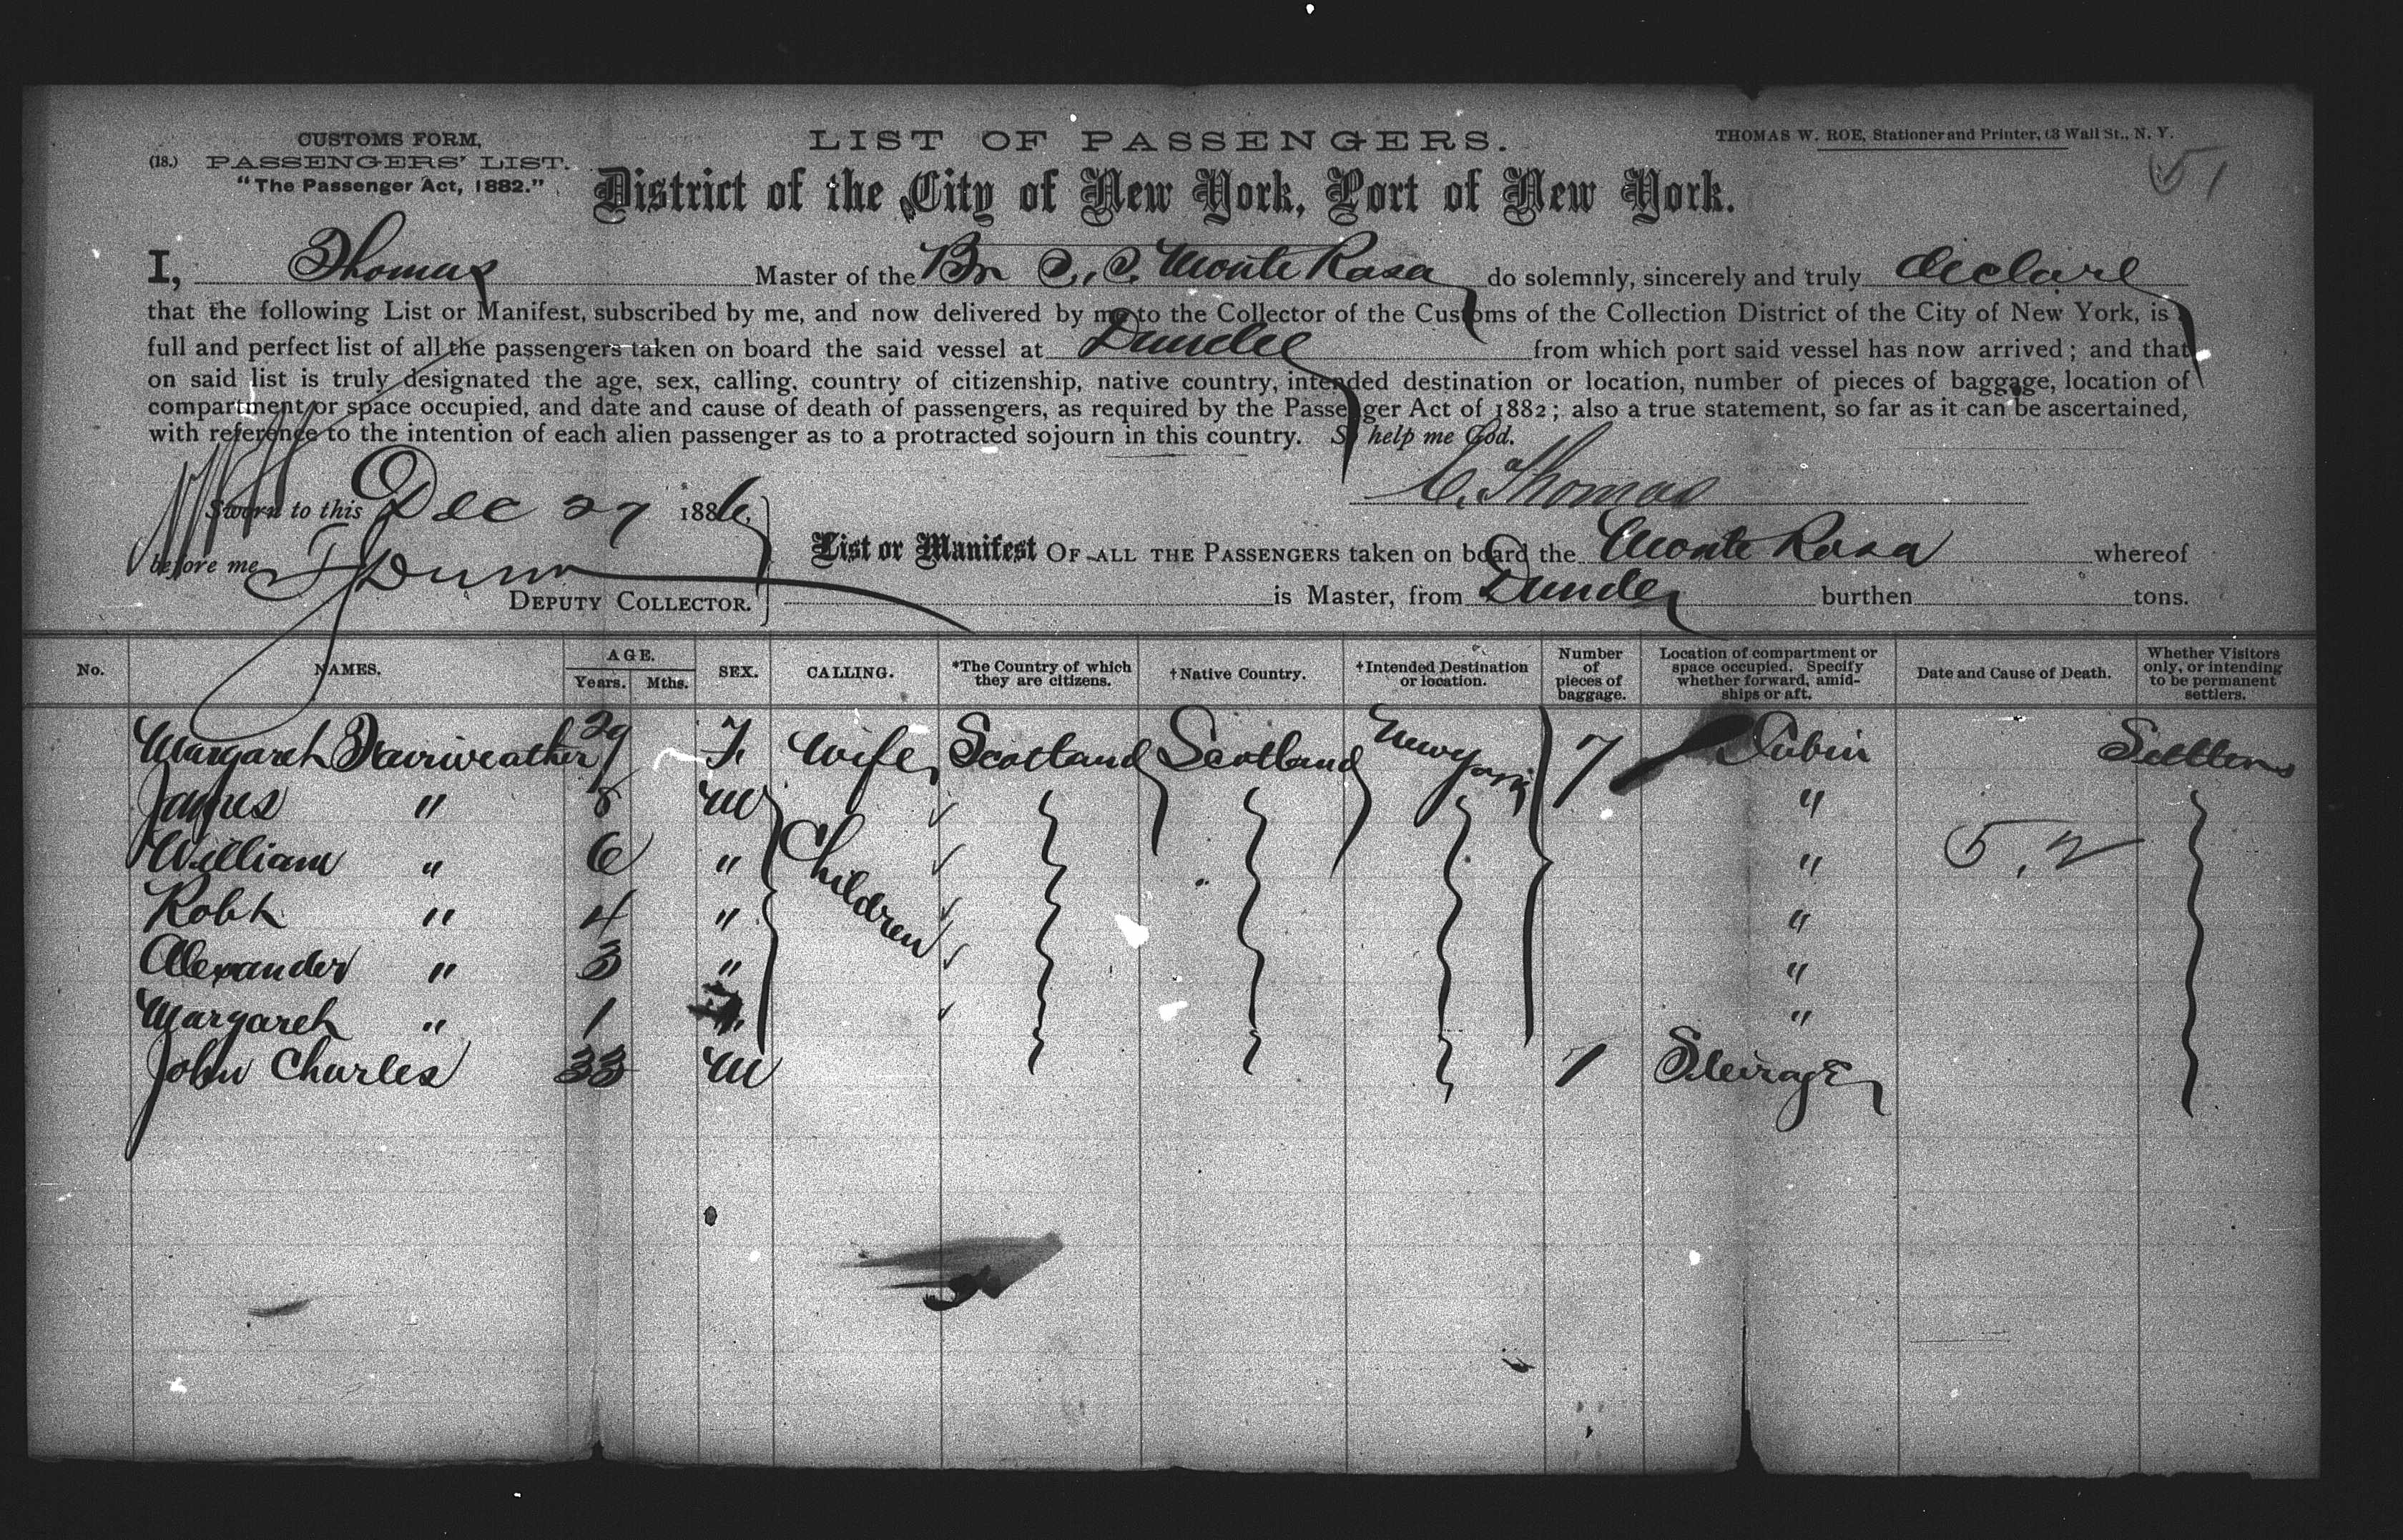 CUSTOMS FORM,
(18.) PASSENGERS' LIST.
"The Passenger Act, 1882."
LIST OF PASSENGERS.
THOMAS W. ROE, Stationer and Printer, 63 Wall St., N. Y.
51
District of the City of New York, Port of New York.
I, Thomas Master of the Br S.S. Monte Rosa do solemnly, sincerely and truly declare
that the following List or Manifest, subscribed by me, and now delivered by me to the Collector of the Customs of the Collection District of the City of New York, is
full and perfect list of all the passengers taken on board the said vessel at Dundee from which port said vessel has now arrived; and that
on said list is truly designated the age, sex, calling, country of citizenship, native country, intended destination or location, number of pieces of baggage, location of
compartment or space occupied, and date and cause of death of passengers, as required by the Passenger Act of 1882; also a true statement, so far as it can be ascertained,
with reference to the intention of each alien passenger as to a protracted sojourn in this country. So help me God.
Sworn to this Dec 27 1886. C. Thomas
before me Dunn
DEPUTY COLLECTOR.
List or Manifest OF ALL THE PASSENGERS taken on board the Monte Rosa whereof
is Master, from Dundee burthen tons.
No. NAMES. AGE. Years. Mths. SEX. CALLING. *The Country of which they are citizens. †Native Country. †Intended Destination or location. Number of pieces of baggage. Location of compartment or space occupied. Specify whether forward, amidships or aft. Date and Cause of Death. Whether Visitors only, or intending to be permanent settlers.
Margaret Fairweather 29 F. Wife Scotland Scotland New York 7 Cabin Settlers
James " 8 M Children "
William " 6 " " 5.2
Robt " 4 " "
Alexander " 3 " "
Margaret " 1 "
John Charles 33 M 1 Steirage